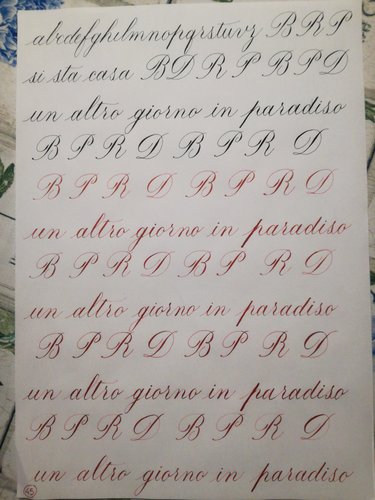 abcdefghilmnopqrstuvz B R P
si sta casa B D R P B P D
un altro giorno in paradiso
B P R D B P R D
B P R D B P R D
un altro giorno in paradiso
B P R D B P R D
un altro giorno in paradiso
B P R D B P R D
un altro giorno in paradiso
B P R D B P R D
45 un altro giorno in paradiso